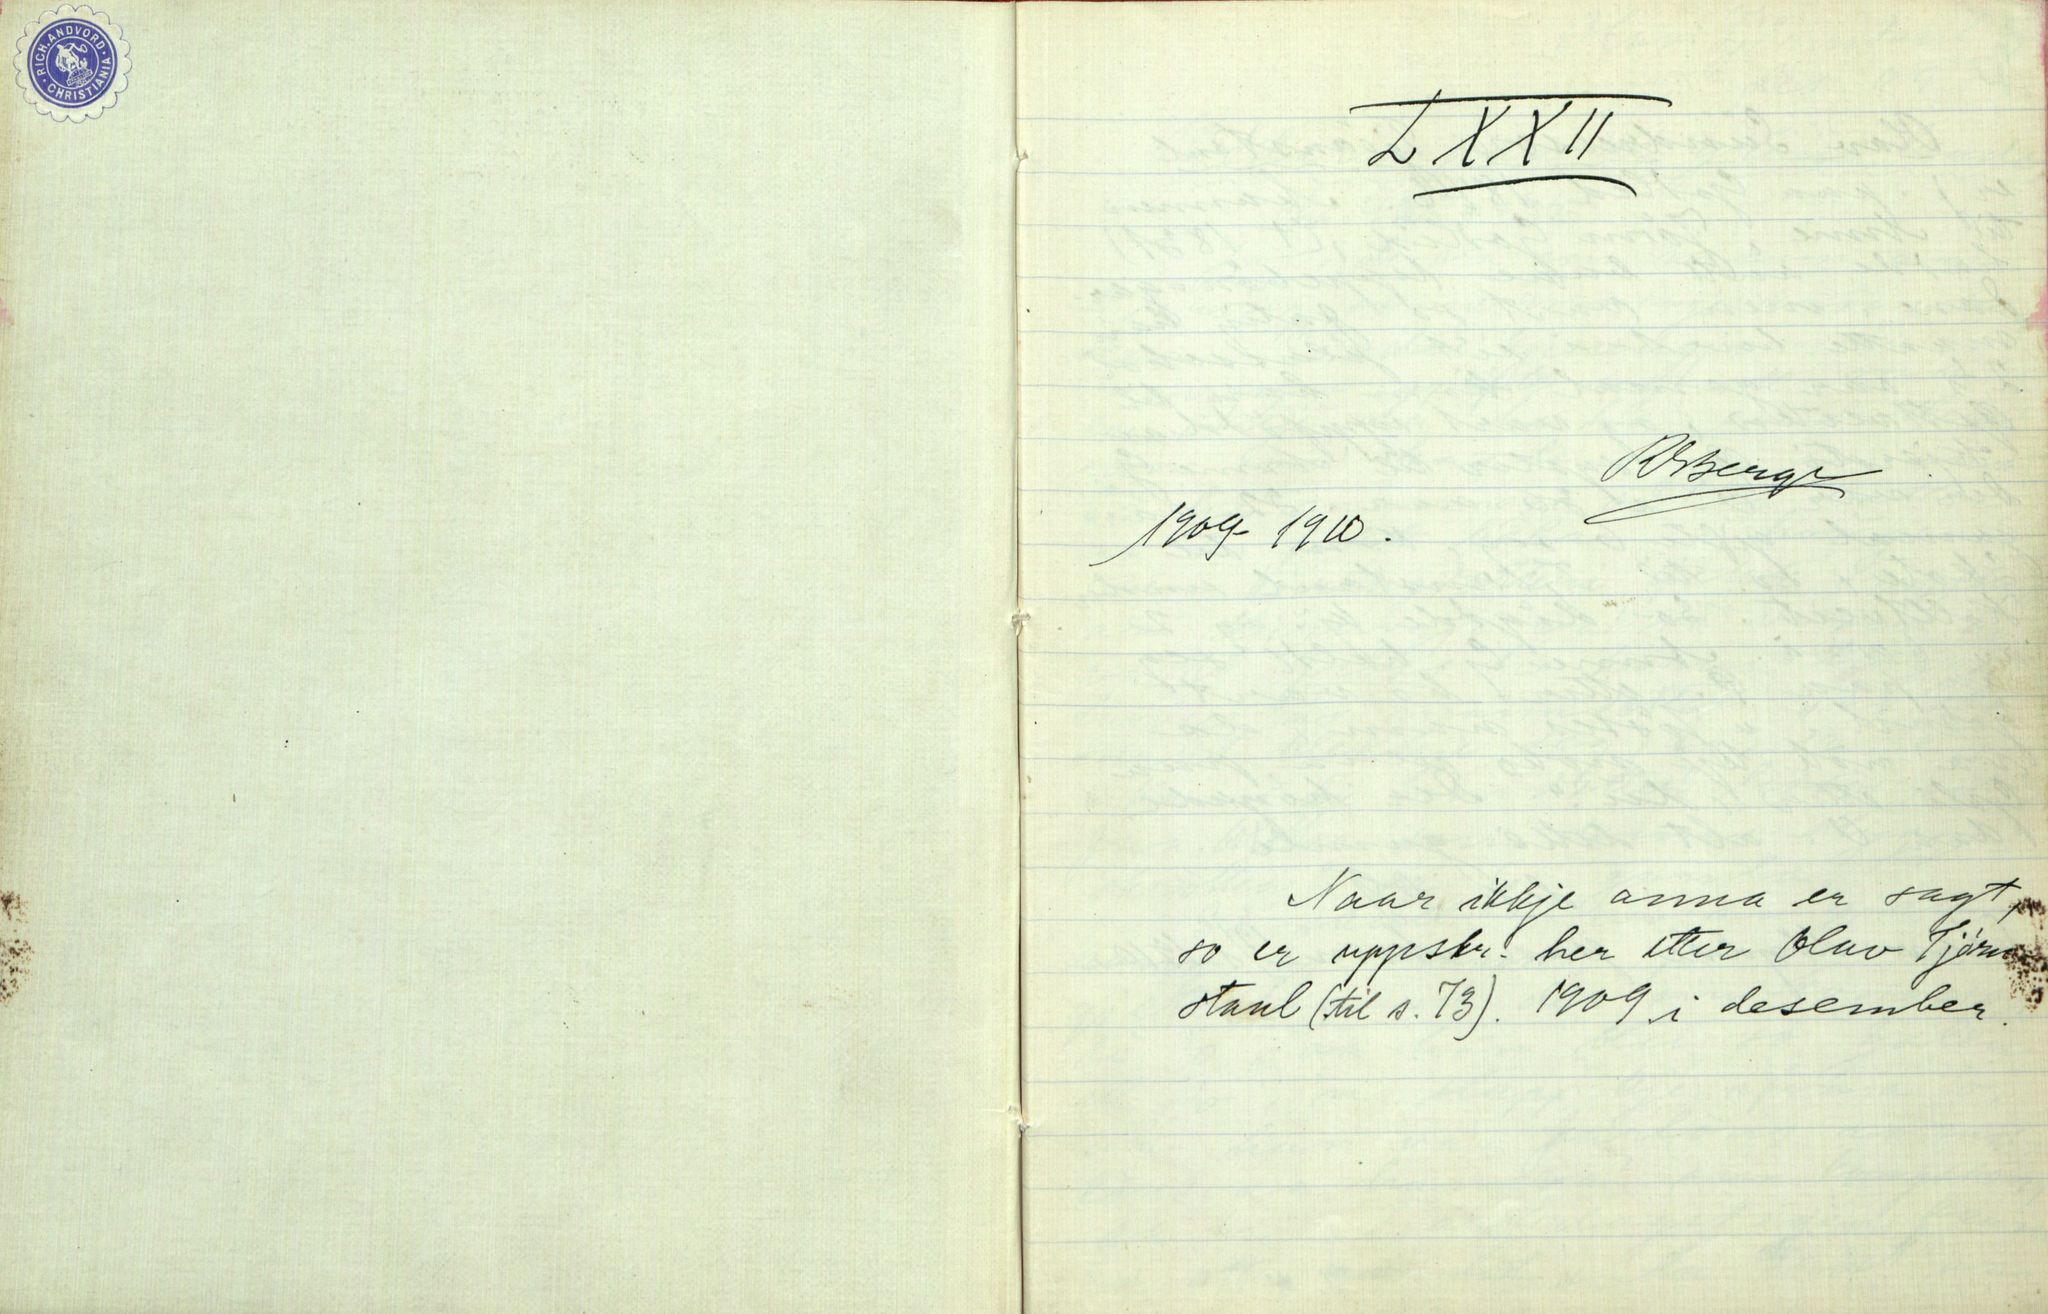 RICH. ANDVORD
CHRISTIANIA
LXXII
RSBerge
1909- 1910.
Naar ikkje anna er sagt,
so er uppskr. her etter Olav Tjønn
staul (til s. 73). 1909 i desember.